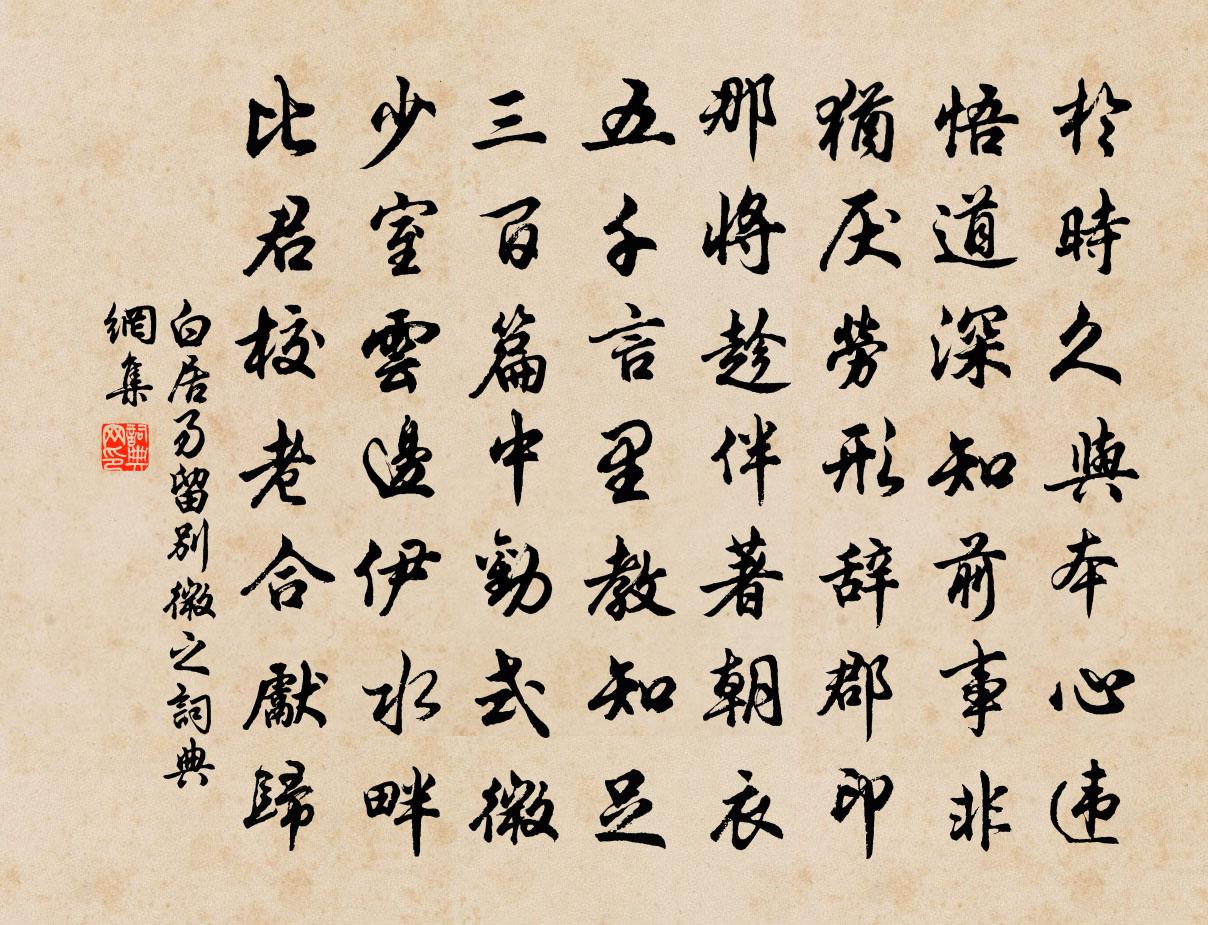 於時久與本心違
悟道深知前事非
猶厌勞形辞郡印
那將趁伴著朝衣
五千言里教知足
三百篇中勸式微
少室雲邊伊水畔
比君校老合獻歸
白居易留別微之詞典
網集
詞典
网印